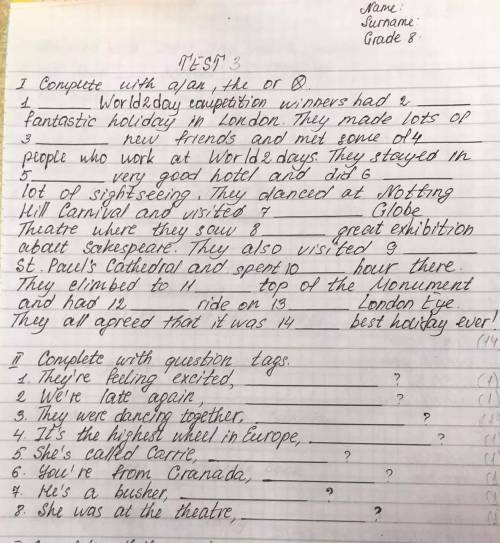 Name:
Surname:
Grade 8.
TEST 3
I Complete with a/an, the or ⊗.
1 ______ World2day competition winners had 2 ______
fantastic holiday in London. They made lots of
3 ______ new friends and met some of 4 ______
people who work at World2days. They stayed in
5 ______ very good hotel and did 6 ______
lot of sightseeing. They danced at Notting
Hill Carnival and visited 7 ______ Globe
Theatre where they saw 8 ______ great exhibition
about Sakespeare. They also visited 9 ______
St. Paul's Cathedral and spent 10 ______ hour there.
They climbed to 11 ______ top of the Monument
and had 12 ______ ride on 13 ______ London Eye.
They all agreed that it was 14 ______ best holiday ever!
(14
II Complete with question tags.
1. They're feeling excited, ______ ? (1)
2. We're late again, ______ ? (1)
3. They were dancing together, ______ ? (1
4. It's the highest wheel in Europe, ______ ? (1
5. She's called Carrie, ______ ? (1
6. You're from Granada, ______ ? (1
7. He's a busker, ______ ? (1
8. She was at the theatre, ______ ? (1